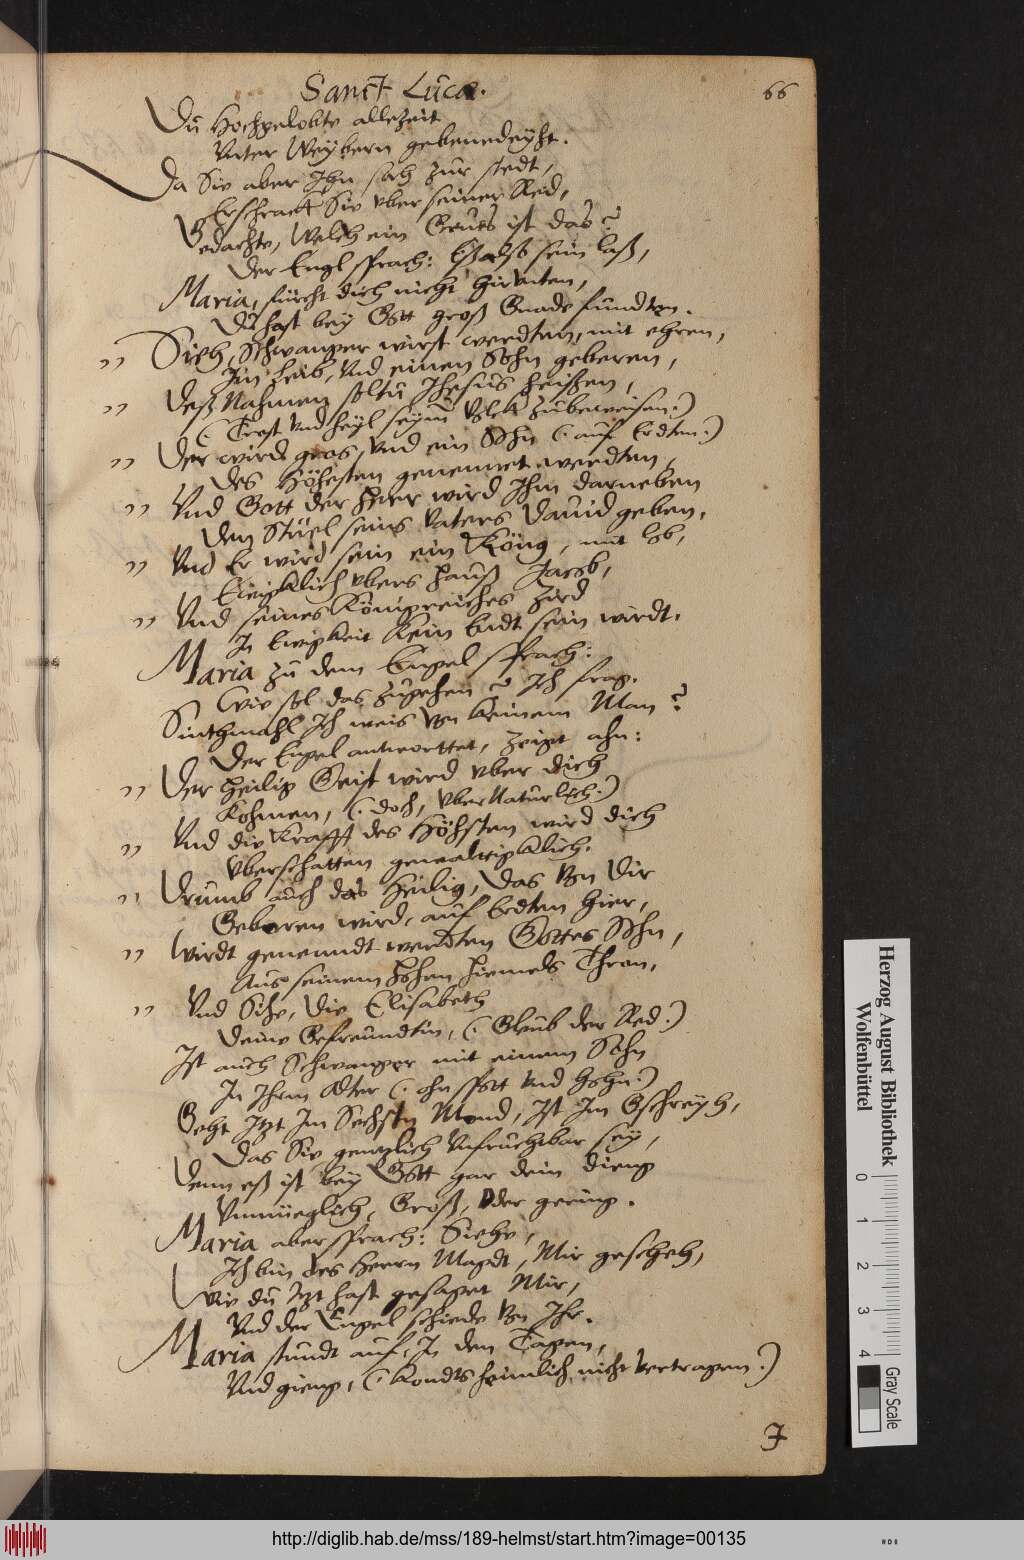 Sanct Lucæ.
66
Du Hochgelobte allezeit
Vnter Weybern gebenedeyht.
Da Sie aber Ihn sach zur stedt,
Erschract Sie vber seiner Red,
Gedachte, Welch ein Grues ist das?
Der Engl sprach: Es also sein laß,
Maria, fürcht dich nicht hirunten,
Du hast bey Gott groß Gnade funden.
,, Sieh, Schwanger wirst werdten, mit ehren,
Im Leib, Vnd einen Sohn geberen,
,, Deß Nahmen soltu Jhesus heißen,
(: Trost vnd heyl seym Volck zubeweisen:)
,, Der wird gros, vnd ein Sohn (: auf Erdten:)
Des Höhesten genennet werdten,
,, Vnd Gott der Herr wird Ihm darneben
Den Stuel seins Vaters Dauid geben,
,, Vnd Er wird sein ein König, mit lob,
Ewigklich vbers Hauß Jacob,
,, Vnd seines Königreiches Zird
In Ewigkeit Kein Endt sein wirdt.
Maria zu dem Engel sprach:
Wie sol das zugehen? Ich frag.
Sinthmahl Ich weis Von keinem Man?
Der Engel antworttet, zeigt ahn:
,, Der heilig Geist wird vber dich
Kohmen, (: doch, vberNaturlich:)
,, Vnd die Krafft des Höhsten wird dich
Vberschatten gewaltigklich.
,, Drumb auch das Heilig, Das Von Dir
Geboren wird, auf Erdten hier,
,, Wirdt genenndt werdten Gottes Sohn,
Aus seinem hohen Himels Thron,
,, Vnd Sihe, Die Elisabeth
Deine Gefreundtin, (: Glaub der Red:)
Ist auch Schwanger mit einem Sohn
In Ihrm Alter (: ohn spott vnd hohn:)
Geht Itzt Im Sechstn Mond, Ist Im Gschreyh,
Das Sie gentzlich Vnfruchtbar sey,
Denn eß ist bey Gott gar kein dieng
Vnmüeglich, Groß, Oder gering.
Maria aber sprach: Siehe,
Ich bin des Herrn Magdt, Mir gescheh,
Wie du Itzt hast gesaget Mir,
Vnd der Engel schiede Von Ihr.
Maria stundt auf, In den Tagen,
Vnd gieng, (: Kondts heimlich nicht vertragen:)
J
Herzog August Bibliothek
Wolfenbüttel
0 1 2 3 4
Gray Scale
http://diglib.hab.de/mss/189-helmst/start.htm?image=00135